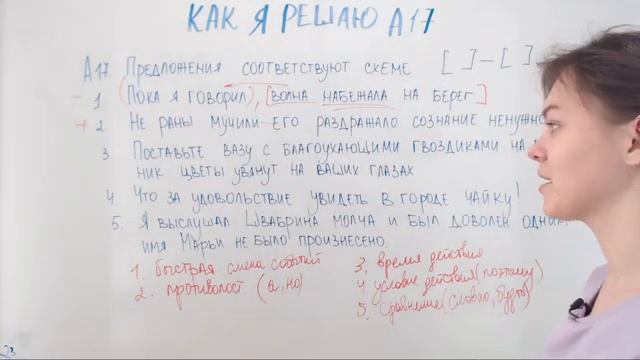 КАК Я РЕШАЮ А17
А17. ПРЕДЛОЖЕНИЯ СООТВЕТСТВУЮТ СХЕМЕ [ ] — [ ]
- 1 (ПОКА Я ГОВОРИЛ), [ВОЛНА НАБЕЖАЛА НА БЕРЕГ]
+ 2. НЕ РАНЫ МУЧИЛИ ЕГО РАЗДРАЖАЛО СОЗНАНИЕ
3. ПОСТАВЬТЕ ВАЗУ С БЛАГОУХАЮЩИМИ ГВОЗДИКАМИ НА
НИК ЦВЕТЫ УВЯНУТ НА ВАШИХ ГЛАЗАХ
4. ЧТО ЗА УДОВОЛЬСТВИЕ УВИДЕТЬ В ГОРОДЕ ЧАЙКУ!
5. Я ВЫСЛУШАЛ ШВАБРИНА МОЛЧА И БЫЛ ДОВОЛЕН ОДНИМ:
ИМЯ МАРЬИ НЕ БЫЛО ПРОИЗНЕСЕНО.
1. быстрая смена событий
2. противопост. (а, но)
3, время действия
4. условие действия (поэтому)
5. сравнение (словно, будто)